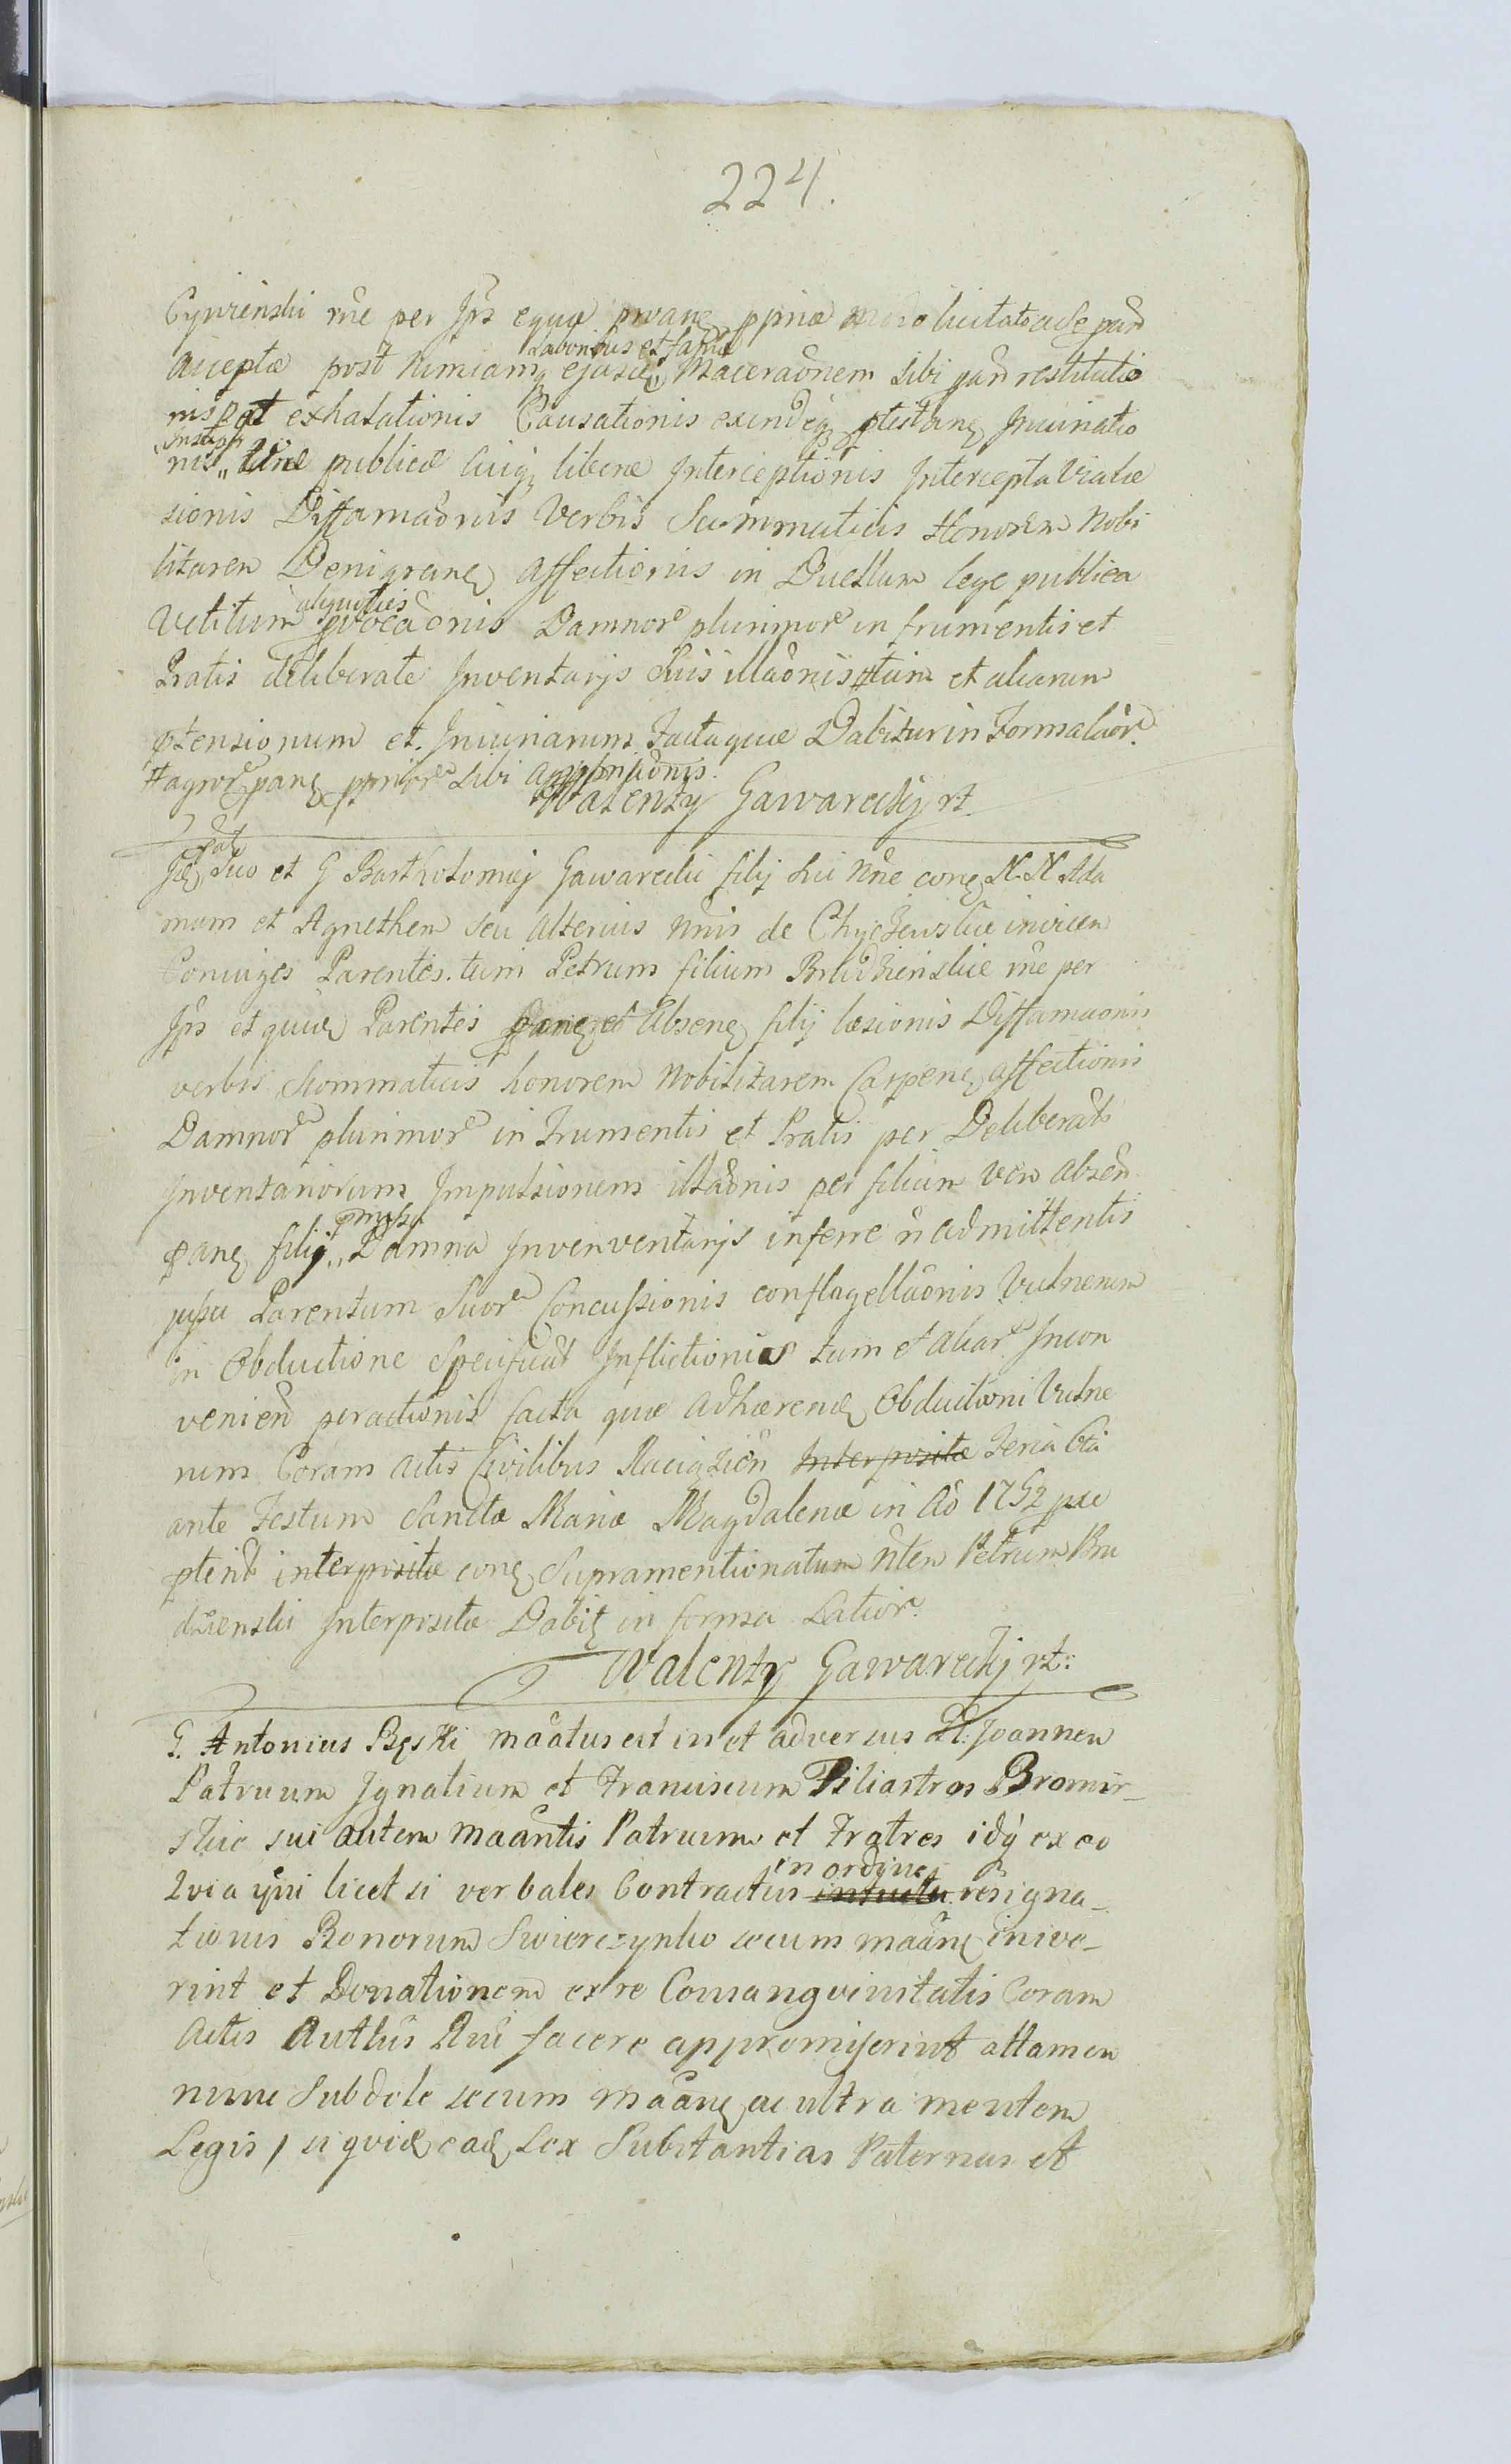 224.
Cywinski rne per Jps equa pvane ppriae modo licitato ac se pad
acceptae post nimiamq ejusdē Laboribus et fame Maceraōnem sibi pad restitutio
nis pat exhalationis Causationis exindeq ptestane Jncinatio
nis in sup Viae publicae cuiq liberae Interceptionis Intercepta Viatae
sionis Diffamaōnis Verbis Scommaticis Honorem Nobi
litarem Denigrane affectionis in Duellum lege publica
Vetitum aliquoties pvocaōnis Damnor plurimor in frumentis et
Pratis deliberate Inventarjs Suis illaōnis # tum et aliarum
ptensionum et Injuriarum Factaque Dabitur in Forma latior
# agror pane pprior sibi
Walenty Gawarecky rt
Jde pat Suo et G Bartholomej Gawarecki filij sui nne cone N. N. Ada
mum et Agnethem seu alterius nnis de Chyczewskie invicem
Coniuges Parentes. tum Petrum filium Brudzienskie rne per
Jps et quide Parentes pane et Absene filij laesionis Diffamaonis
verbis Scommaticis honorem Nobilitarem Carpene affectionis
Damnor plurimor in Frumentis et Pratis per Deliberat
Inventariorum Impulsionem illaōnis per filium vero absen
pane filij pmissa Damna Invenventarjs inferre n admittentis
jussu Parentum Suor Concussionis conflagellaōnis Vulnerum
in Obductione Specificat Inflictionis tum et aliar Incon
venien peractionis facta quae adhaerende Obductioni Vulne
rum Coram actis Civilibus Raciąžien Interpositae Feria 6ta
ante Festum Sanctae Mariae Magdalenae in Aō 1752 pxe
pterit interpositae cone Supramentionatum nten Petrum Bru
dzienski Interpositae Dabit in forma Latior
Walenty Gawarecky rt:
G. Antonius Bęski maātus est in et adversus G: Joannem
Patruum Ignatium et Franciscum Filiastros Bromir_
skie sui autem maāntis Patruum et Fratres idq ex eo
Quia ipsi licet si verbales Contractus in ordine intuitu resigna_
tionis Bonorum Swierczynko secum maāne inive_
rint et Donationem ex re Consangvinitatis Coram
Actis Authūs Qui facere appromiserint attamen
nunc Subdole secum maāne ac ultra mentem
Legis / siqvide eade Lex Substantias Paternas et